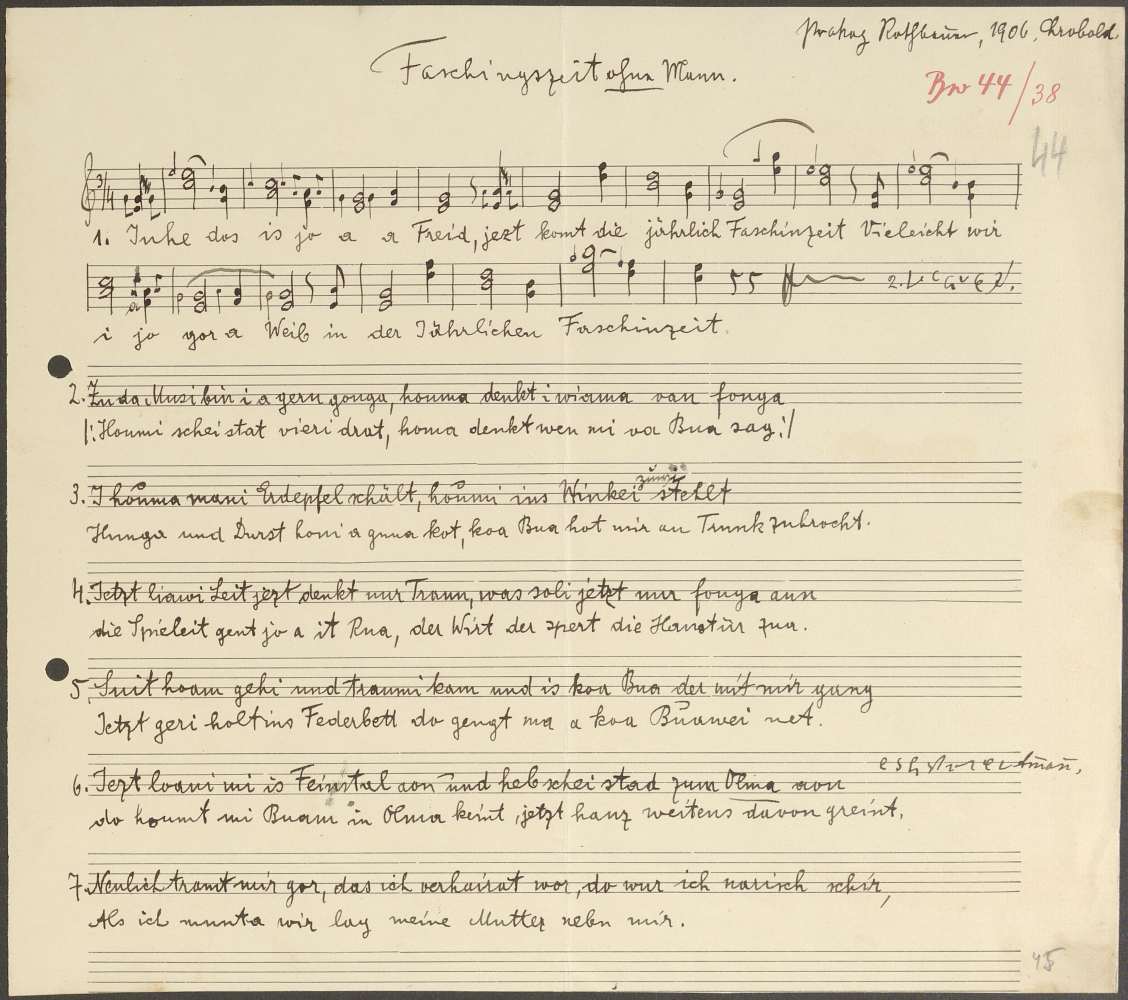 Rothbauer, 1906, Chrobold.
Faschingszeit ohne Mann.
Bw 44/38
44
1. Juhe dos is jo a a Freid, jezt komt die jährlich Faschinzeit Vieleicht wir
i jo gor a Weib in der Jährlichen Faschinzeit.
2. Zu da Musi bin i a gern gonga, honma denkt i wiama van fonga
|: Honmi schei stat vieri drat, homa denkt wen mi va Bua sag :|
zuwi
3. I honma mani Erdepfel schält, honmi ins Winkei stellt
Hunga und Durst honi a gnua kot, koa Bua hot mir an Trunk zubrocht.
4. Jetzt liawi Leit jezt denkt nur Traun, was soli jetzt nur fonga aun
die Spieleit gent jo a it Rua, der Wirt der spert die Haustür zua.
5. Suit hoam gehi und traumi kam und is koa Bua der mit mir gung
Jetzt geri holt ins Federbett do gengt ma a koa Buawei net.
6. Jezt loani mi is Feinstal aon und heb schei stad zum Olma aon
do koumt mi Buam in Olma keint, jetzt hanz weitens davon greint.
7. Neulich tramt mir gor, das ich verhairat wor, do wur ich narisch schir,
Als ich munta wir lag meine Mutter nebn mir.
45